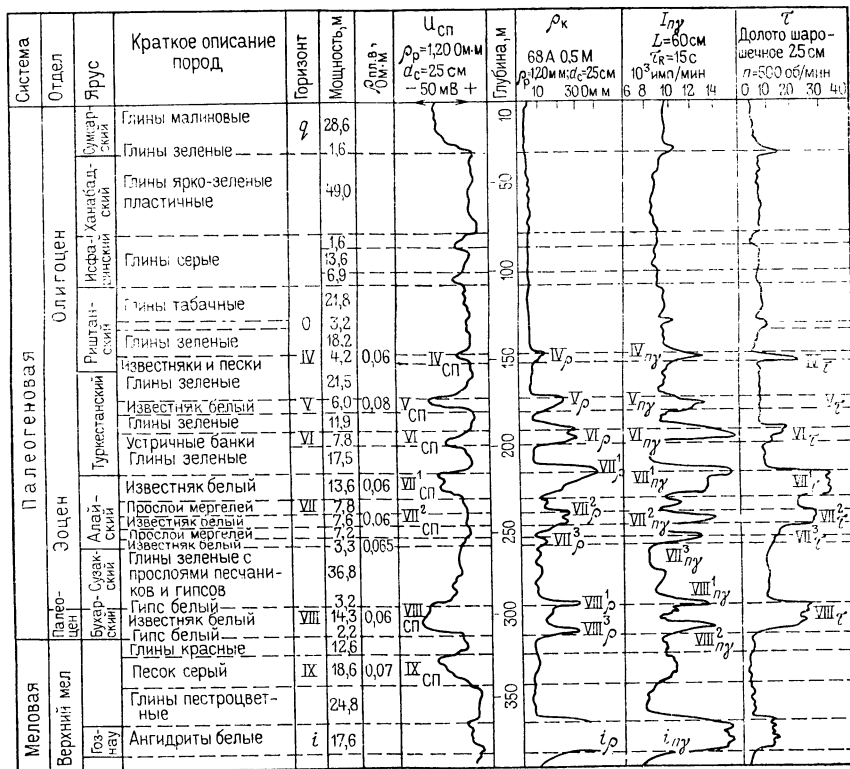 Система
Отдел
Ярус
Краткое описание пород
Горизонт
Мощность, м
ρпл.в, Ом·м
Uсп
ρр=1,20 Ом·м
dс=25 см
− 50 мВ +
Глубина, м
ρк
68 А 0,5 М
ρр=1,20 м м; dс=25см
10 300м м
Iпγ
L=60см
τR=15с
10³ имп/мин
6 8 10 14
τ
Долото шарошечное 25 см
n=500 об/мин
0 10 30 40
Палеогеновая
Меловая
Олигоцен
Эоцен
Палеоцен
Верхний мел
Сумсарский
Ханабадский
Исфаринский
Риштанский
Туркестанский
Алайский
Сузакский
Бухарский
Гознау
Глины малиновые q 28,6
Глины зеленые 1,6
Глины ярко-зеленые пластичные 49,0
1,6
Глины серые 13,6
6,9
Глины табачные 21,8
0 3,2
Глины зеленые 18,2
Известняки и пески IV 4,2 0,06
Глины зеленые 21,5
Известняк белый V 6,0 0,08
Глины зеленые 11,9
Устричные банки VI 7,8
Глины зеленые 17,5
Известняк белый 13,6 0,06
Прослои мергелей VII 7,8
Известняк белый 7,6 0,06
Прослои мергелей 7,2
Известняк белый 3,3 0,065
Глины зеленые с прослоями песчаников и гипсов 36,8
Гипс белый 3,2
Известняк белый VIII 14,3 0,06
Гипс белый 2,2
Глины красные 12,6
Песок серый IX 18,6 0,07
Глины пестроцветные 24,8
Ангидриты белые i 17,6
IV СП
V СП
VI СП
VII¹ СП
VII² СП
VIII СП
IX СП
10
50
100
150
200
250
300
350
IVρ
Vρ
VIρ
VII¹ρ
VII²ρ
VII³ρ
VIII¹ρ
VIII³ρ
iρ
IVпγ
Vпγ
VIпγ
VII¹пγ
VII²пγ
VII³пγ
VIII¹пγ
VIII²пγ
iпγ
IVτ
Vτ
VIτ
VII¹τ
VII²τ
VII³τ
VIIIτ